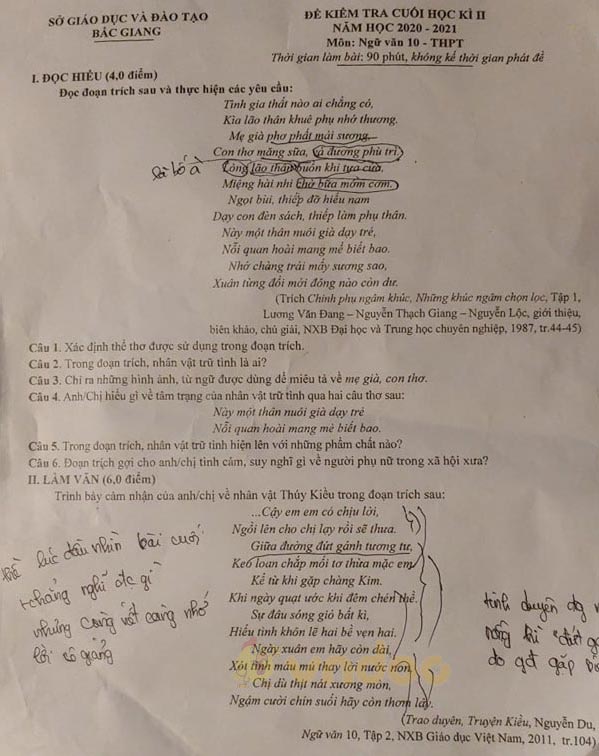 SỞ GIÁO DỤC VÀ ĐÀO TẠO
BẮC GIANG
ĐỀ KIỂM TRA CUỐI HỌC KÌ II
NĂM HỌC 2020 - 2021
Môn: Ngữ văn 10 - THPT
Thời gian làm bài: 90 phút, không kể thời gian phát đề
I. ĐỌC HIỂU (4,0 điểm)
Đọc đoạn trích sau và thực hiện các yêu cầu:
Tình gia thất nào ai chẳng có,
Kìa lão thân khuê phụ nhớ thương.
Mẹ già phơ phất mái sương,
Con thơ măng sữa, vả đương phù trì.
Lòng lão thân buồn khi tựa cửa,
Miệng hài nhi chờ bữa mớm cơm.
Ngọt bùi, thiếp đỡ hiếu nam
Dạy con đèn sách, thiếp làm phụ thân.
Nay một thân nuôi già dạy trẻ,
Nỗi quan hoài mang mể biết bao.
Nhớ chàng trải mấy sương sao,
Xuân từng đổi mới đông nào còn dư.
(Trích Chinh phụ ngâm khúc, Những khúc ngâm chọn lọc, Tập 1,
Lương Văn Đang – Nguyễn Thạch Giang – Nguyễn Lộc, giới thiệu,
biên khảo, chú giải, NXB Đại học và Trung học chuyên nghiệp, 1987, tr.44-45)
Câu 1. Xác định thể thơ được sử dụng trong đoạn trích.
Câu 2. Trong đoạn trích, nhân vật trữ tình là ai?
Câu 3. Chỉ ra những hình ảnh, từ ngữ được dùng để miêu tả về mẹ già, con thơ.
Câu 4. Anh/Chị hiểu gì về tâm trạng của nhân vật trữ tình qua hai câu thơ sau:
Này một thân nuôi già dạy trẻ
Nỗi quan hoài mang mẻ biết bao.
Câu 5. Trong đoạn trích, nhân vật trữ tình hiện lên với những phẩm chất nào?
Câu 6. Đoạn trích gợi cho anh/chị tình cảm, suy nghĩ gì về người phụ nữ trong xã hội xưa?
II. LÀM VĂN (6,0 điểm)
Trình bày cảm nhận của anh/chị về nhân vật Thúy Kiều trong đoạn trích sau:
...Cậy em em có chịu lời,
Ngồi lên cho chị lạy rồi sẽ thưa.
Giữa đường đứt gánh tương tư,
Keo loan chắp mối tơ thừa mặc em.
Kể từ khi gặp chàng Kim.
Khi ngày quạt ước khi đêm chén thề.
Sự đâu sóng gió bất kì,
Hiếu tình khôn lẽ hai bề vẹn hai.
Ngày xuân em hãy còn dài,
Xót tình máu mủ thay lời nước non.
Chị dù thịt nát xương mòn,
Ngậm cười chín suối hãy còn thơm lây.
(Trao duyên, Truyện Kiều, Nguyễn Du,
Ngữ văn 10, Tập 2, NXB Giáo dục Việt Nam, 2011, tr.104)
lúc đầu nhìn bài cuối
chẳng nghĩ đc gì
nhưng càng viết càng nhớ
lời cô giảng
tình duyên đg